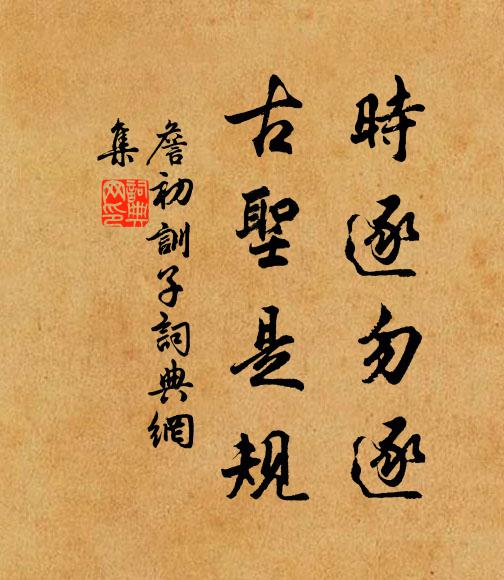 時逐勿逐
古聖是規
詹初訓子詞典網
集
詞典
网印